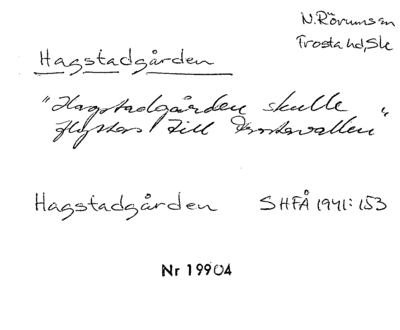 N. Rörums sn
Frosta hd, Sk
Hagstadgården
"Hagstadgården skulle
flyttas till
Hagstadgården SHFÅ 1941:153
Nr 19904